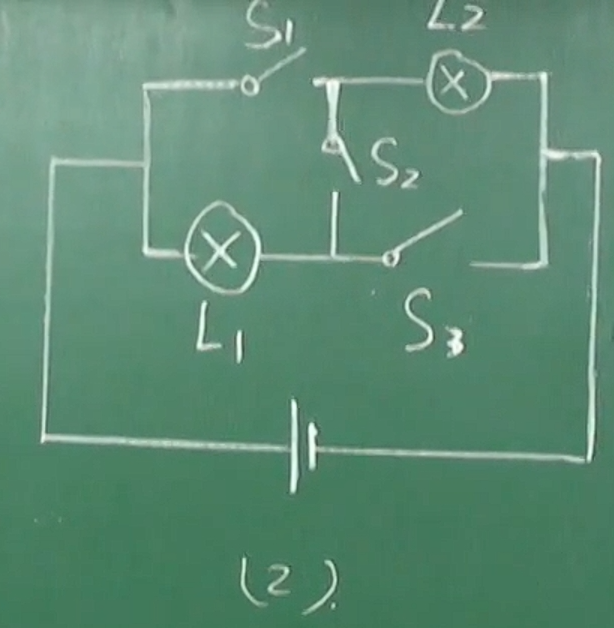 S1 L2
S2
L1 S3
(2).